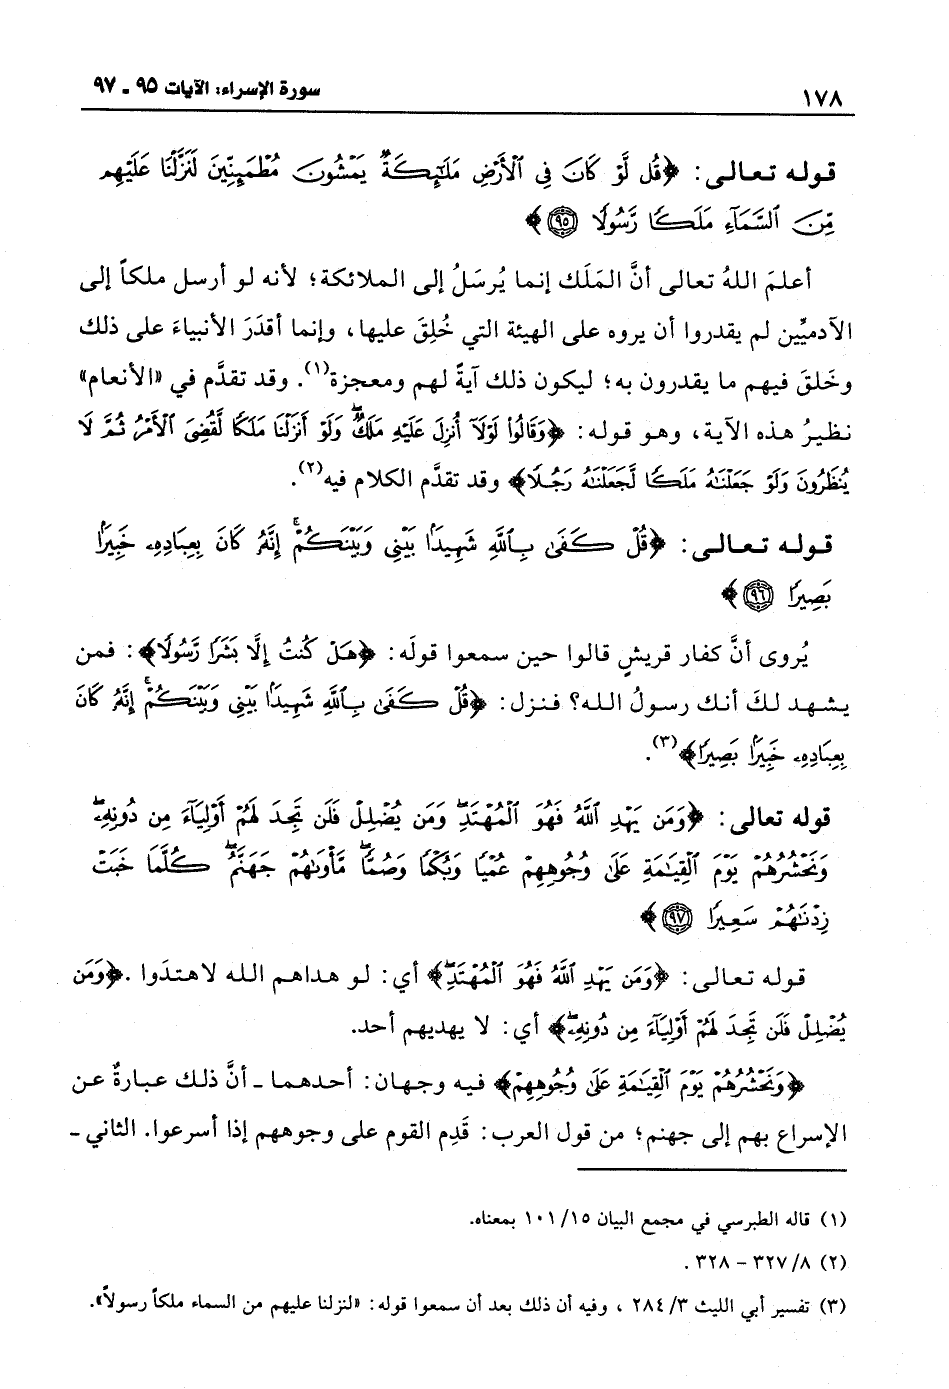 ١٧٨
سورة الإسراء: الآيات ٩٥ - ٩٧
قوله تعالى: ﴿قُل لَّوْ كَانَ فِى ٱلْأَرْضِ مَلَٰٓئِكَةٌ يَمْشُونَ مُطْمَئِنِّينَ لَنَزَّلْنَا عَلَيْهِم
مِّنَ ٱلسَّمَآءِ مَلَكًا رَّسُولًا ٩٥﴾
أعلمَ اللهُ تعالى أنَّ المَلَك إنما يُرسَلُ إلى الملائكة؛ لأنه لو أرسل ملكاً إلى
الآدميِّين لم يقدروا أن يروه على الهيئة التي خُلِقَ عليها، وإنما أقدَرَ الأنبياءَ على ذلك
وخَلقَ فيهم ما يقدرون به؛ ليكون ذلك آيةً لهم ومعجزة(١). وقد تقدَّم في «الأنعام»
نظيرُ هذه الآية، وهو قوله: ﴿وَقَالُوا۟ لَوْلَآ أُنزِلَ عَلَيْهِ مَلَكٌ ۖ وَلَوْ أَنزَلْنَا مَلَكًا لَّقُضِىَ ٱلْأَمْرُ ثُمَّ لَا
يُنظَرُونَ وَلَوْ جَعَلْنَٰهُ مَلَكًا لَّجَعَلْنَٰهُ رَجُلًا﴾ وقد تقدَّم الكلام فيه(٢).
قوله تعالى: ﴿قُلْ كَفَىٰ بِٱللَّهِ شَهِيدًۢا بَيْنِى وَبَيْنَكُمْ ۚ إِنَّهُۥ كَانَ بِعِبَادِهِۦ خَبِيرًۢا
بَصِيرًا ٩٦﴾
يُروى أنَّ كفار قريشٍ قالوا حين سمعوا قولَه: ﴿هَلْ كُنتُ إِلَّا بَشَرًا رَّسُولًا﴾: فمن
يشهد لكَ أنك رسولُ الله؟ فنزل: ﴿قُلْ كَفَىٰ بِٱللَّهِ شَهِيدًۢا بَيْنِى وَبَيْنَكُمْ ۚ إِنَّهُۥ كَانَ
بِعِبَادِهِۦ خَبِيرًۢا بَصِيرًا﴾(٣).
قوله تعالى: ﴿وَمَن يَهْدِ ٱللَّهُ فَهُوَ ٱلْمُهْتَدِ ۖ وَمَن يُضْلِلْ فَلَن تَجِدَ لَهُمْ أَوْلِيَآءَ مِن دُونِهِۦ ۖ
وَنَحْشُرُهُمْ يَوْمَ ٱلْقِيَٰمَةِ عَلَىٰ وُجُوهِهِمْ عُمْيًا وَبُكْمًا وَصُمًّا ۖ مَّأْوَىٰهُمْ جَهَنَّمُ ۖ كُلَّمَا خَبَتْ
زِدْنَٰهُمْ سَعِيرًا ٩٧﴾
قوله تعالى: ﴿وَمَن يَهْدِ ٱللَّهُ فَهُوَ ٱلْمُهْتَدِ ۖ﴾ أي: لو هداهم الله لاهتدَوا. ﴿وَمَن
يُضْلِلْ فَلَن تَجِدَ لَهُمْ أَوْلِيَآءَ مِن دُونِهِۦ ۖ﴾ أي: لا يهديهم أحد.
﴿وَنَحْشُرُهُمْ يَوْمَ ٱلْقِيَٰمَةِ عَلَىٰ وُجُوهِهِمْ﴾ فيه وجهان: أحدهما ـ أنَّ ذلك عبارةٌ عن
الإسراع بهم إلى جهنم؛ من قول العرب: قَدِم القوم على وجوههم إذا أسرعوا. الثاني ـ
(١) قاله الطبرسي في مجمع البيان ١٥/ ١٠١ بمعناه.
(٢) ٨/ ٣٢٧ - ٣٢٨ .
(٣) تفسير أبي الليث ٣/ ٢٨٤ ، وفيه أن ذلك بعد أن سمعوا قوله: «لنزلنا عليهم من السماء ملكاً رسولاً».